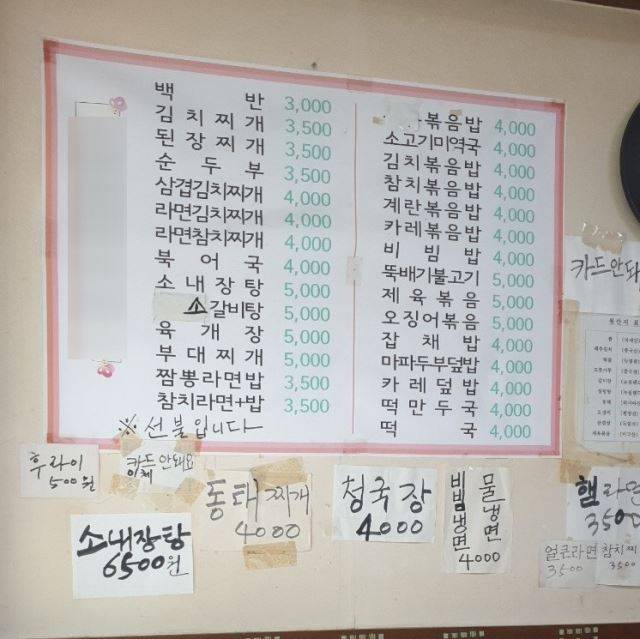 백반 3,000
김치찌개 3,500
된장찌개 3,500
순두부 3,500
삼겹김치찌개 4,000
라면김치찌개 4,000
라면참치찌개 4,000
북어국 4,000
소내장탕 5,000
소갈비탕 5,000
육개장 5,000
부대찌개 5,000
짬뽕라면밥 3,500
참치라면+밥 3,500
※선불입니다
볶음밥 4,000
소고기미역국 4,000
김치볶음밥 4,000
참치볶음밥 4,000
계란볶음밥 4,000
카레볶음밥 4,000
비빔밥 4,000
뚝배기불고기 5,000
제육볶음 5,000
오징어볶음 5,000
잡채밥 4,000
마파두부덮밥 4,000
카레덮밥 4,000
떡만두국 4,000
떡국 4,000
카드안돼
후라이
500원
카드안돼요
이체
소내장탕
6500원
동태찌개
4000
청국장
4000
물냉면
비빔냉면
4000
햄라면
3500
얼큰라면
3500
참치찌
3500